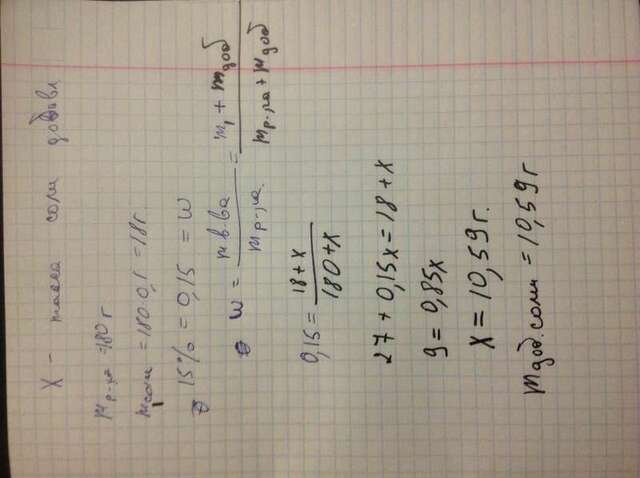 X - масса соли добавл
m р-ра = 180 г
m соли = 180·0,1 = 18г.
15% = 0,15 = W
W = m в.ва / m р-ра. = m₁ + m доб / m р-ра + m доб
0,15 = 18+x / 180+x
27 + 0,15x = 18 + x
9 = 0,85x
X = 10,59 г.
m доб. соли = 10,59 г